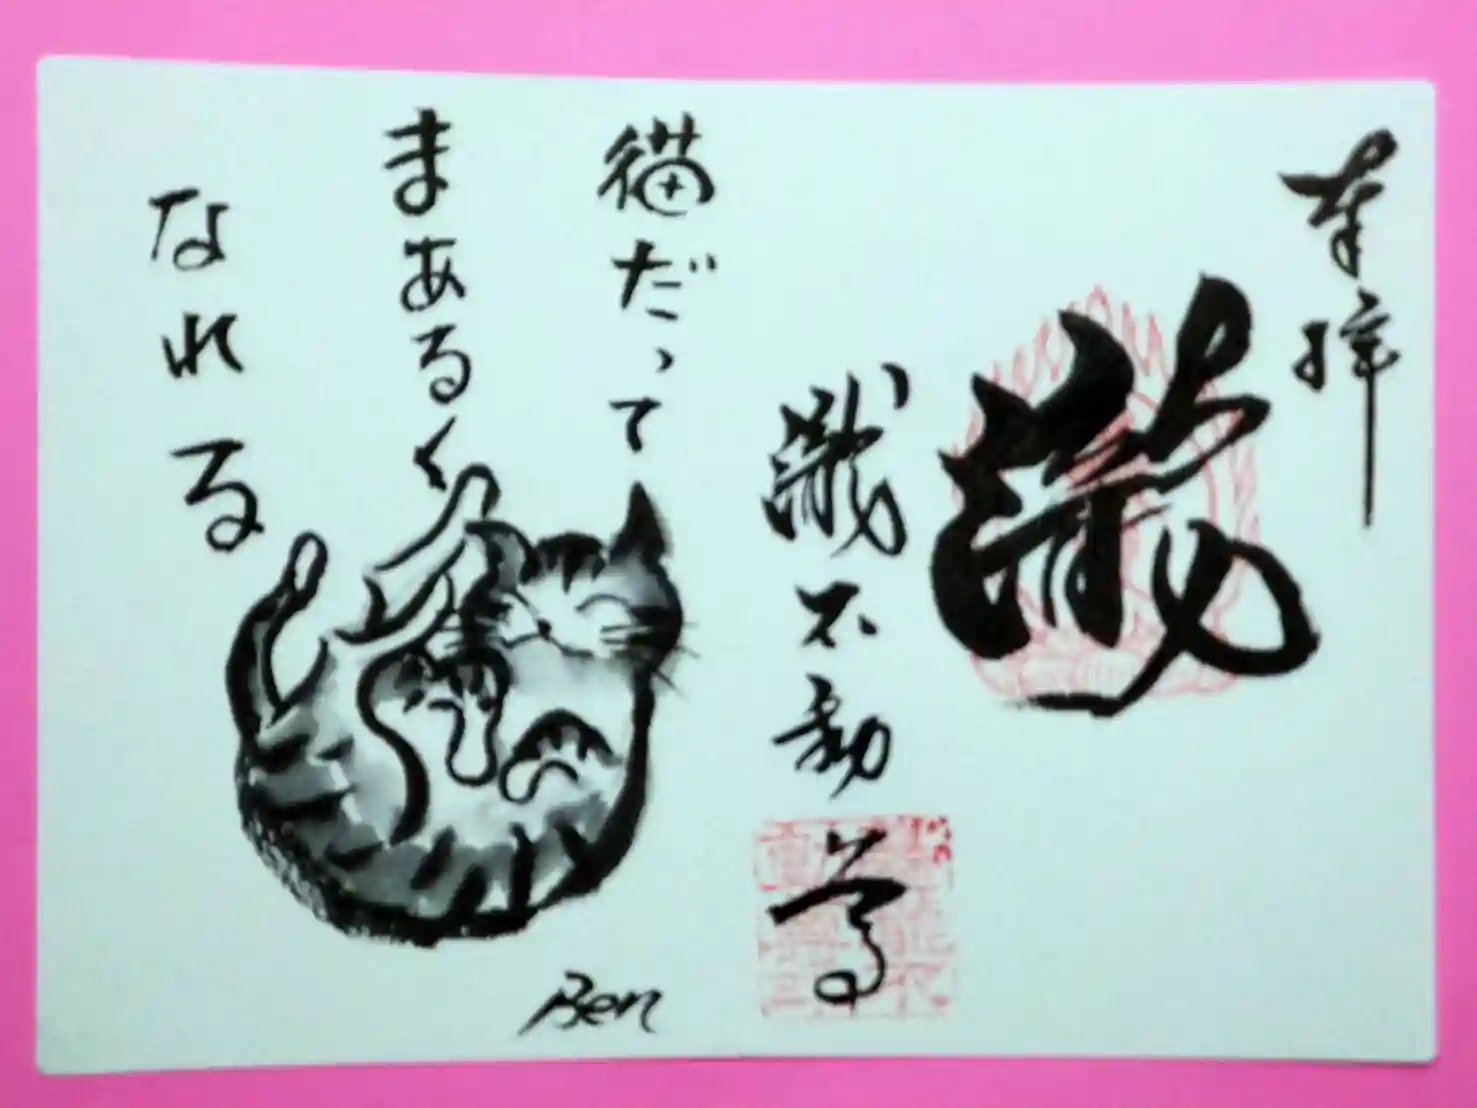 奉拝
瀧
瀧不動尊
猫だって
まあるく
なれる
Ben